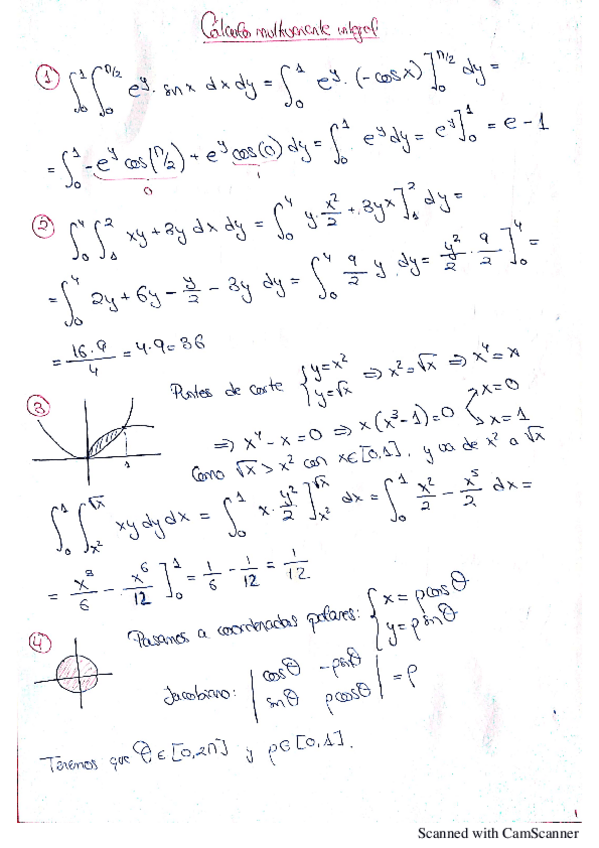 Cálculo multivariante integral
① ∫₀¹ ∫₀^{π/2} e^y · sin x dx dy = ∫₀¹ e^y · (-cos x) ]₀^{π/2} dy =
= ∫₀¹ -e^y cos(π/2) + e^y cos(0) dy = ∫₀¹ e^y dy = e^y ]₀¹ = e - 1
0 1
② ∫₀⁴ ∫₁² xy + 3y dx dy = ∫₀⁴ y · x²/2 + 3yx ]₁² dy =
= ∫₀⁴ 2y + 6y - y/2 - 3y dy = ∫₀⁴ 9/2 y dy = y²/2 · 9/2 ]₀⁴ =
= 16·9/4 = 4·9 = 36
③ Puntos de corte { y = x² y = √x ⇒ x² = √x ⇒ x⁴ = x
⇒ x⁴ - x = 0 ⇒ x(x³ - 1) = 0 x = 0 x = 1
1
Como √x > x² con x ∈ [0,1], y va de x² a √x
∫₀¹ ∫_{x²}^{√x} xy dy dx = ∫₀¹ x · y²/2 ]_{x²}^{√x} dx = ∫₀¹ x²/2 - x⁵/2 dx =
= x³/6 - x⁶/12 ]₀¹ = 1/6 - 1/12 = 1/12
④ Pasamos a coordenadas polares: { x = ρcosθ y = ρsinθ
Jacobiano: | cosθ -ρsinθ sinθ ρcosθ | = ρ
Tenemos que θ ∈ [0,2π] y ρ ∈ [0,1].
1
Scanned with CamScanner